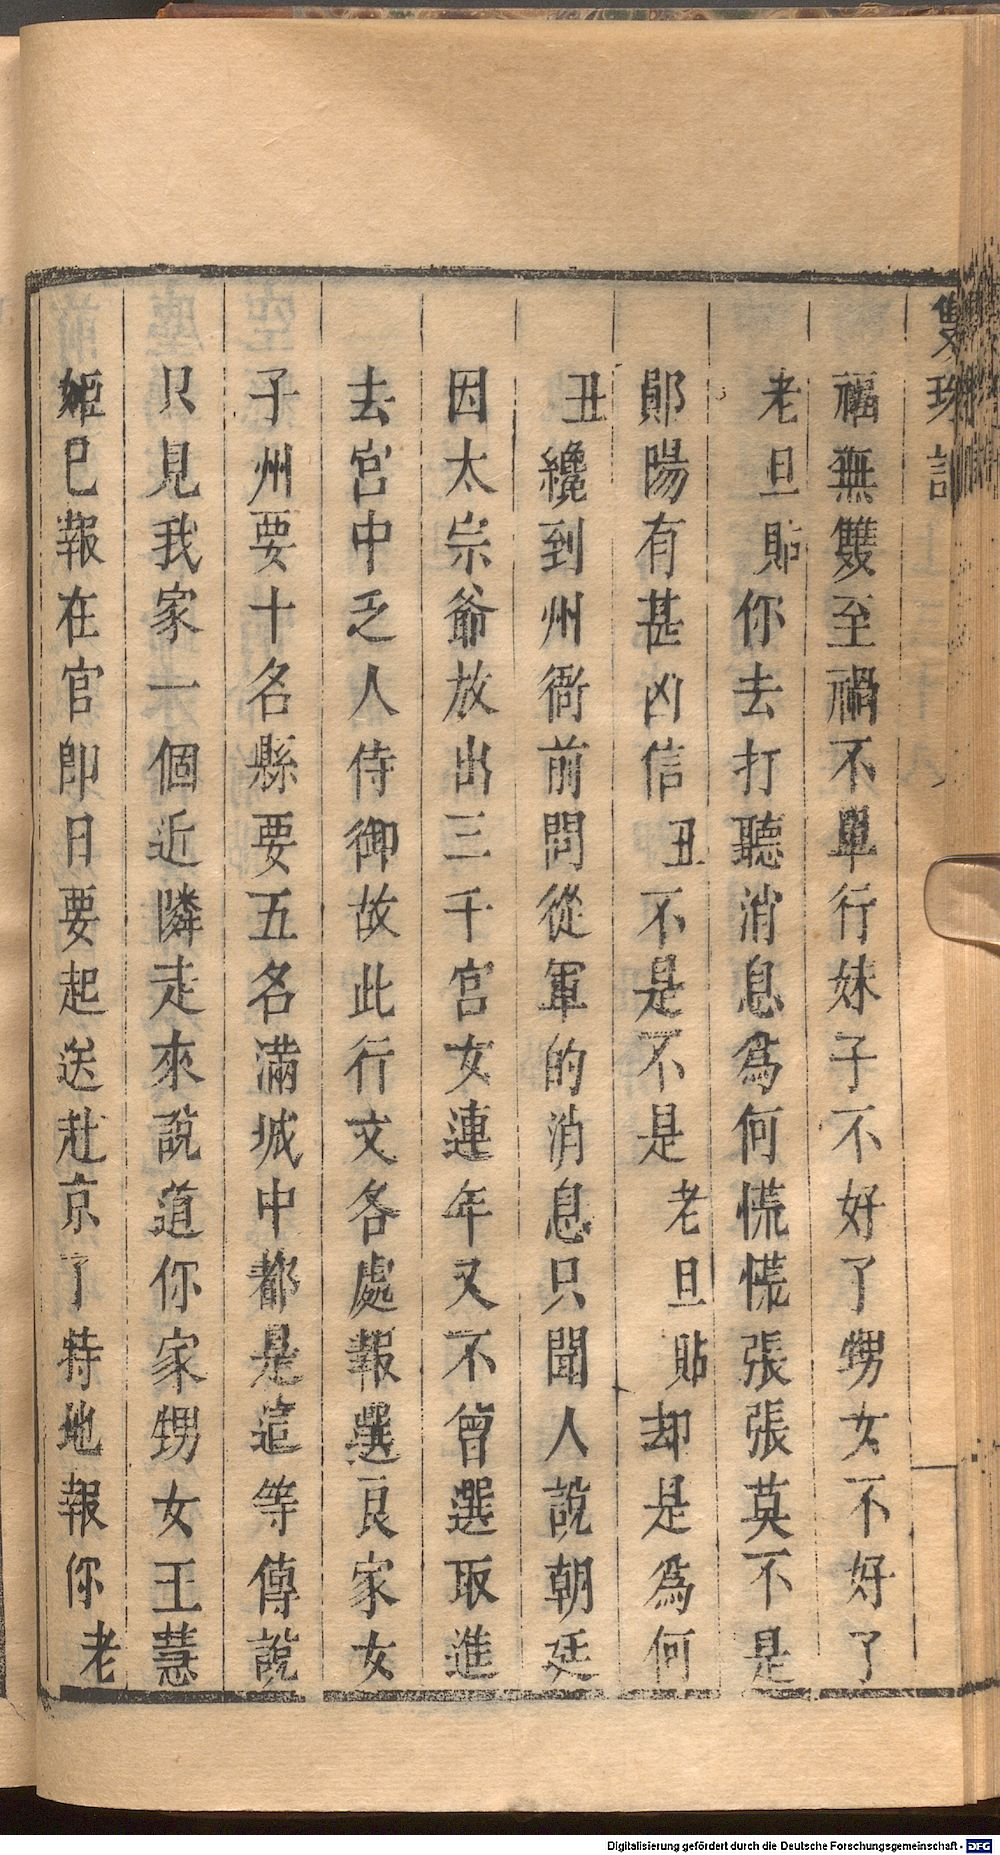 隻珠記
福無雙至禍不單行妹子不好了甥女不好了
老旦貼你去打聽消息爲何慌慌張張莫不是
鄖陽有甚凶信丑不是不是老旦貼却是爲何
丑纔到州衙前問從軍的消息只聞人說朝廷
因太宗爺放出三千宮女連年又不曾選取進
去宮中乏人侍御故此行文各處報選良家女
子州要十名縣要五名滿城中都是這等傳說
只見我家一個近隣走來說道你家甥女王慧
姬已報在官卽日要起送赴京了特地報你老
Digitalisierung gefördert durch die Deutsche Forschungsgemeinschaft - DFG